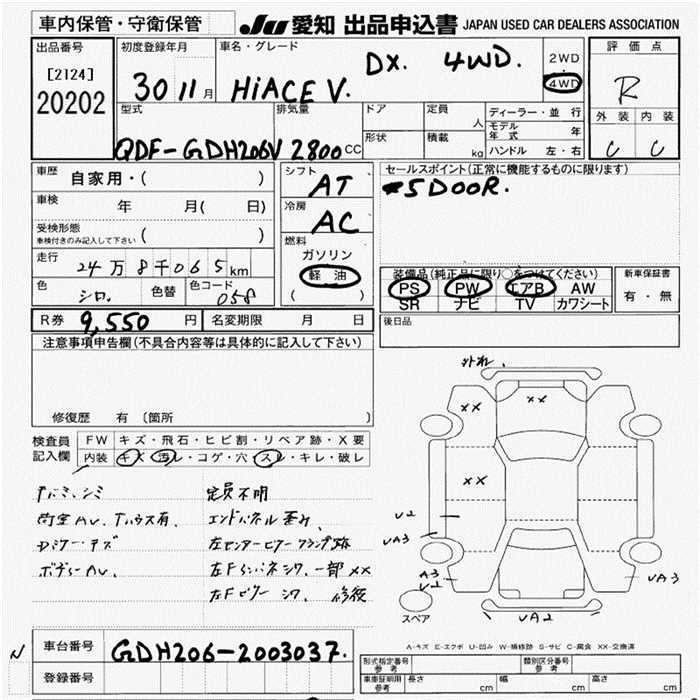 車内保管・守衛保管
JU 愛知 出品申込書 JAPAN USED CAR DEALERS ASSOCIATION
出品番号
[2124]
20202
初度登録年月
30 11 月
車名・グレード
HiACE V. DX. 4WD.
2WD
4WD
評価点
R
外装 内装
C C
型式
QDF-GDH206V
排気量
2800 CC
ドア
定員
人
形状
積載
kg
ディーラー・並行
モデル年式 年
ハンドル 左・右
車歴
自家用・( )
車検
年 月( 日)
受検形態
車検付きのみ記入して下さい ( )
走行
24万8千065 km
色
シロ.
色替
色コード
058
シフト
AT
冷房
AC
燃料
ガソリン
軽油
( )
セールスポイント(正常に機能するものに限ります)
5DOOR.
装備品(純正品に限り○をつけてください)
PS PW エアB AW
SR ナビ TV カワシート
新車保証書
有・無
R券 9,550 円
名変期限 月 日
後日品
注意事項申告欄(不具合内容等は具体的に記入して下さい)
修復歴 有 〔箇所 〕
検査員記入欄
FW キズ・飛石・ヒビ割・リペア跡・X要
内装 キズ・汚レ・コゲ・穴・スレ・キレ・破レ
定員不明
エンドパネル歪み、
ボデーAU、
左センターピラーフランジ跡
一部 XX
左Fピラー シワ、 修復
外れ、
XX
XX
XX
XX
U2
UA3
A3
U2
UA2
UA3
スペア
A-キズ E-エクボ U-凹み W-補修跡 S-サビ C-腐食 XX-交換済
N
車台番号
GDH206-2003037.
登録番号
形式指定番号
参考
類別区分番号
参考
車庫証明用
参考
長さ cm 幅 cm 高さ cm